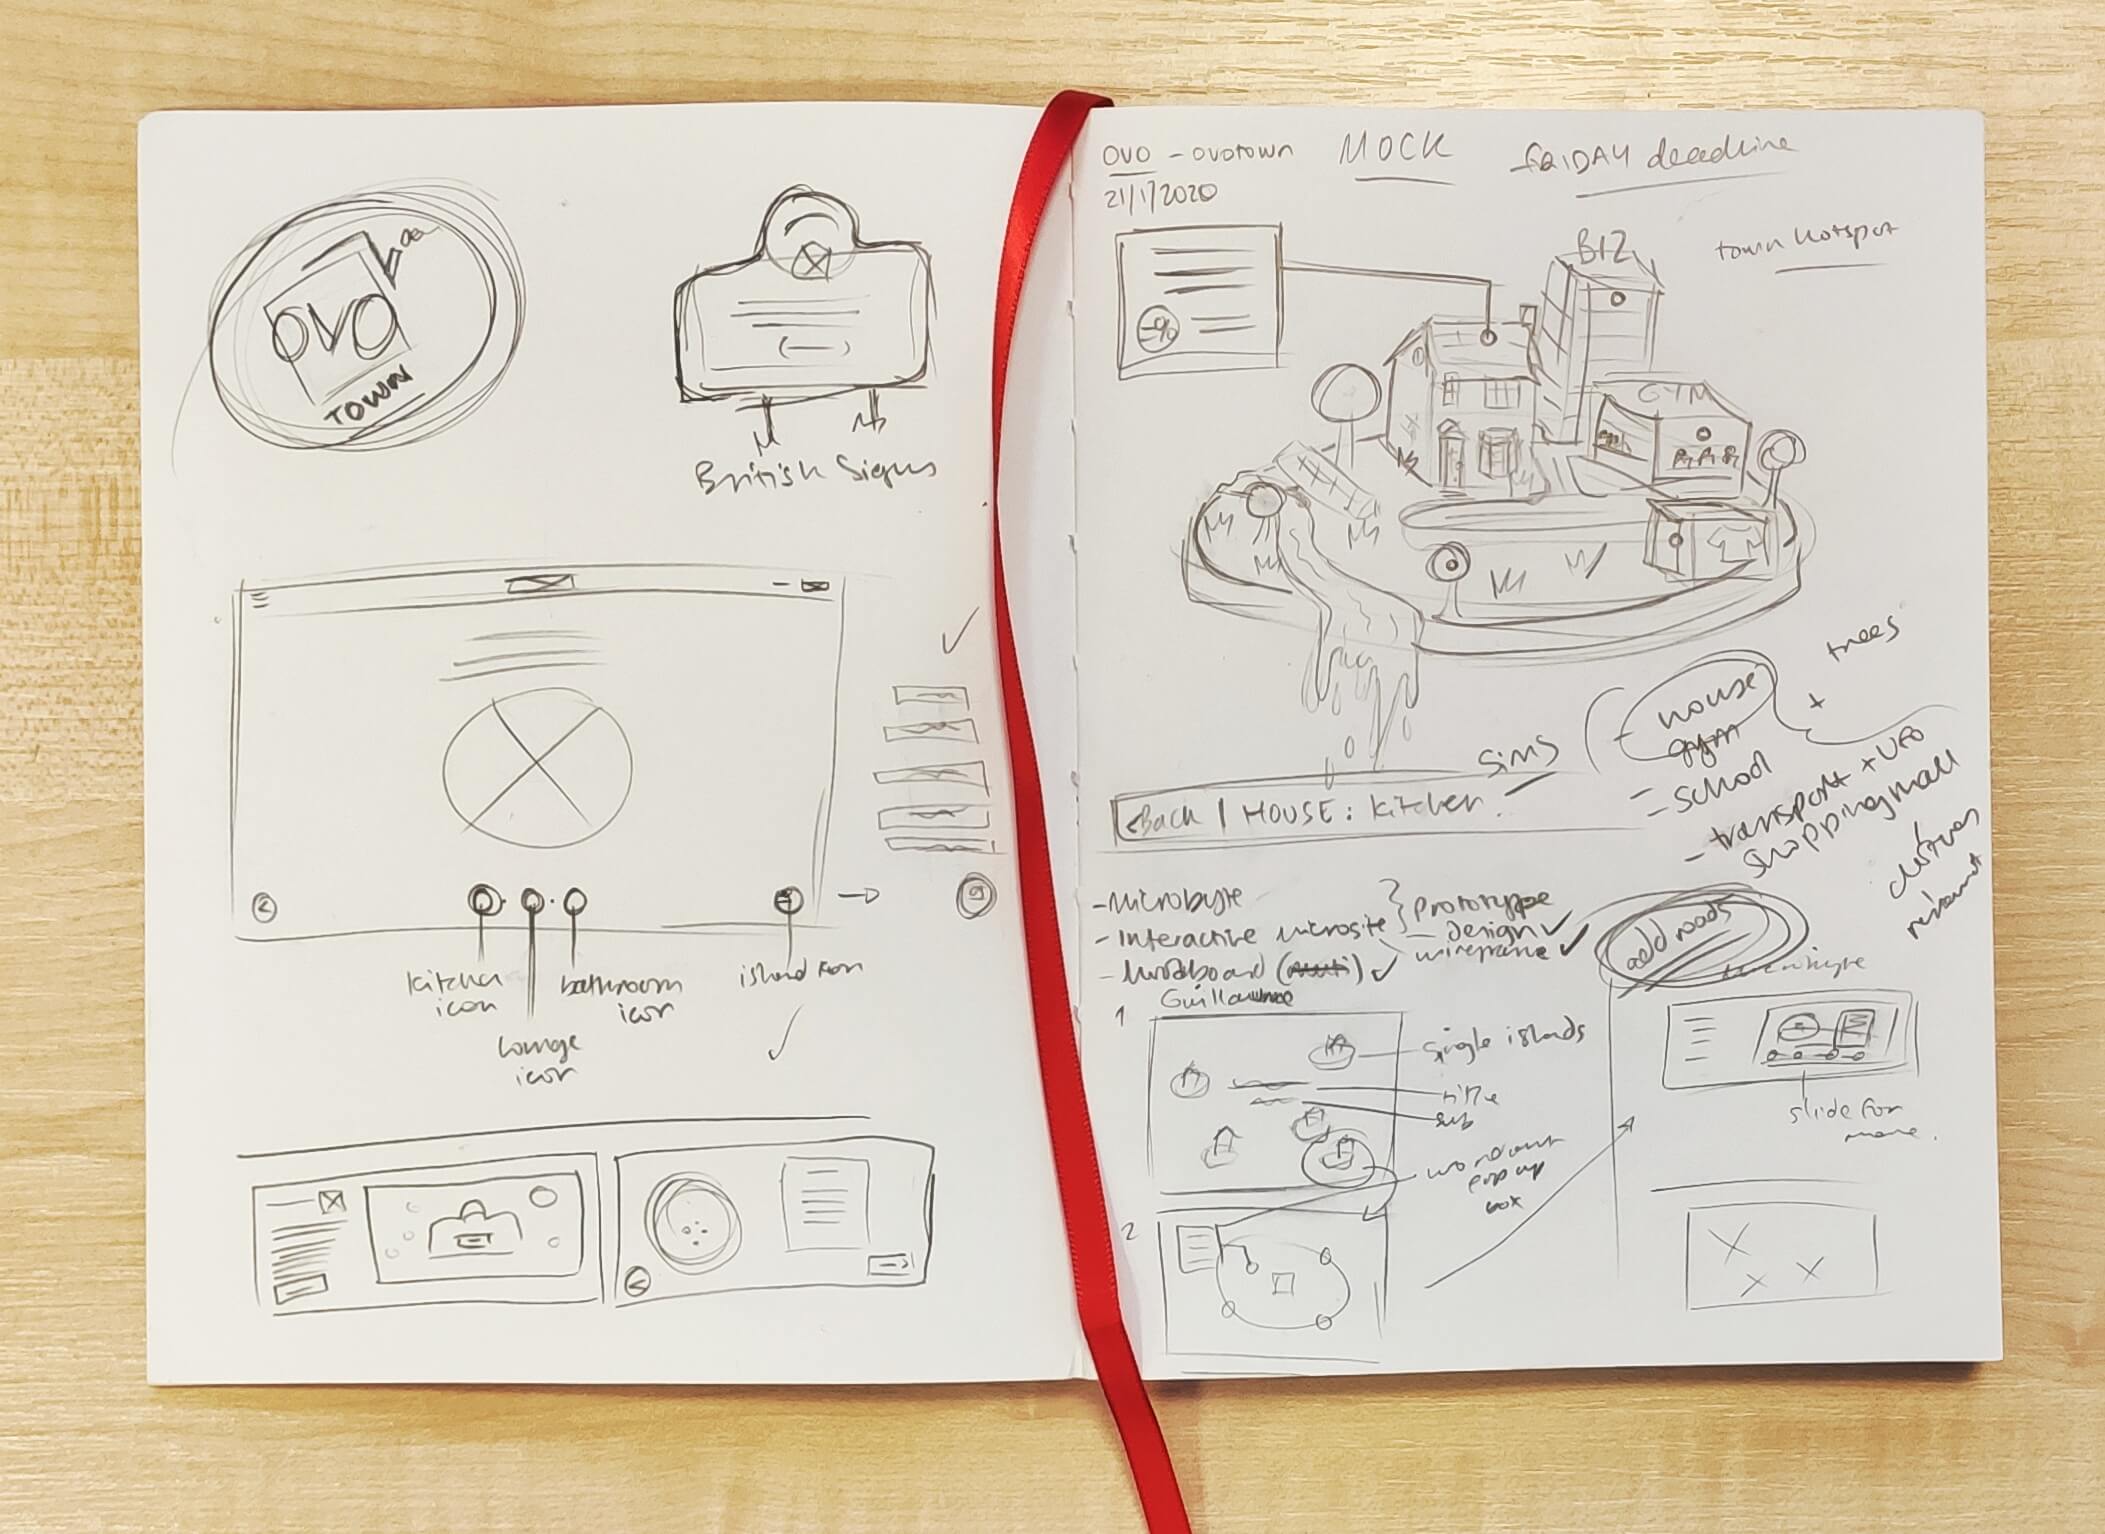 OVO
TOWN
British Signs
kitchen
icon
Lounge
icon
bathroom
icon
island icon
OVO - OVOTOWN MOCK FRIDAY deadline
21/1/2020
town hotspot
BIZ
-%
GYM
trees
+
Sims
- House
gym
- School
- transport + UFO
Shopping mall
<Back | HOUSE: Kitchen
- Microbyte
- Interactive microsite } Prototype
- Design ✓
wireframe ✓
- Moodboard ✓
Guillaume
add roads
microbyte
1
single islands
title
sub
pop up
box
2
slide for
more.